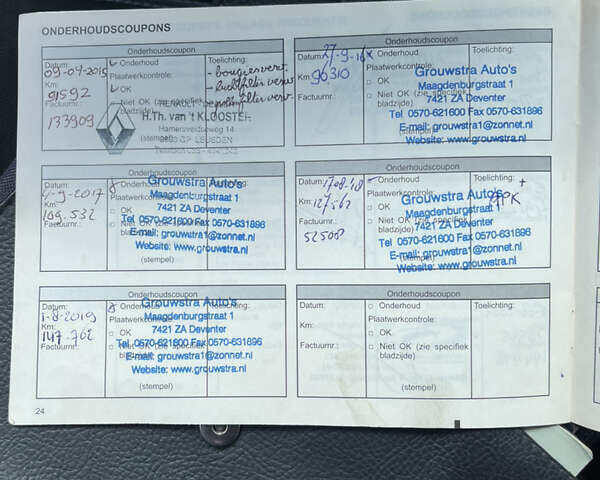 ONDERHOUDSCOUPONS
Onderhoudscoupon
Datum: 09-04-2015
Onderhoud
Toelichting:
Plaatwerkcontrole:
- bougies verv.
Km: 91592
OK
- luchtfilter verv
Niet OK (zie specifiek bladzijde)
Factuurnr.: 133909
H.Th. van 't KLOOSTER
Hamersveldseweg 14
(stempel)
Onderhoudscoupon
Datum: 27-9-16
Onderhoud
Toelichting:
Km: 96310
Plaatwerkcontrole:
OK
Niet OK (zie specifiek bladzijde)
Factuurnr.:
Grouwstra Auto's
Maagdenburgstraat 1
7421 ZA Deventer
Tel 0570-621600 Fax 0570-631896
E-mail: grouwstra1@zonnet.nl
Website: www.grouwstra.nl
Onderhoudscoupon
Datum: 4-9-2017
Onderhoud
Toelichting:
Km: 109.532
Plaatwerkcontrole:
OK
Niet OK (zie specifiek bladzijde)
Factuurnr.:
Grouwstra Auto's
Maagdenburgstraat 1
7421 ZA Deventer
Tel 0570-621600 Fax 0570-631896
E-mail: grouwstra1@zonnet.nl
Website: www.grouwstra.nl
(stempel)
Onderhoudscoupon
Datum: 1708.18
Onderhoud
Toelichting:
+ APK
Km: 127.562
Plaatwerkcontrole:
OK
Niet OK (zie specifiek bladzijde)
Factuurnr.: 525008
Grouwstra Auto's
Maagdenburgstraat 1
7421 ZA Deventer
Tel 0570-621600 Fax 0570-631896
E-mail: grouwstra1@zonnet.nl
Website: www.grouwstra.nl
(stempel)
Onderhoudscoupon
Datum: 1-8-2019
Onderhoud
Toelichting:
Km: 147.762
Plaatwerkcontrole:
OK
Niet OK (zie specifiek bladzijde)
Factuurnr.:
Grouwstra Auto's
Maagdenburgstraat 1
7421 ZA Deventer
Tel 0570-621600 Fax 0570-631896
E-mail: grouwstra1@zonnet.nl
Website: www.grouwstra.nl
(stempel)
Onderhoudscoupon
Datum:
Onderhoud
Toelichting:
Plaatwerkcontrole:
Km:
OK
Factuurnr.:
Niet OK (zie specifiek bladzijde)
(stempel)
24